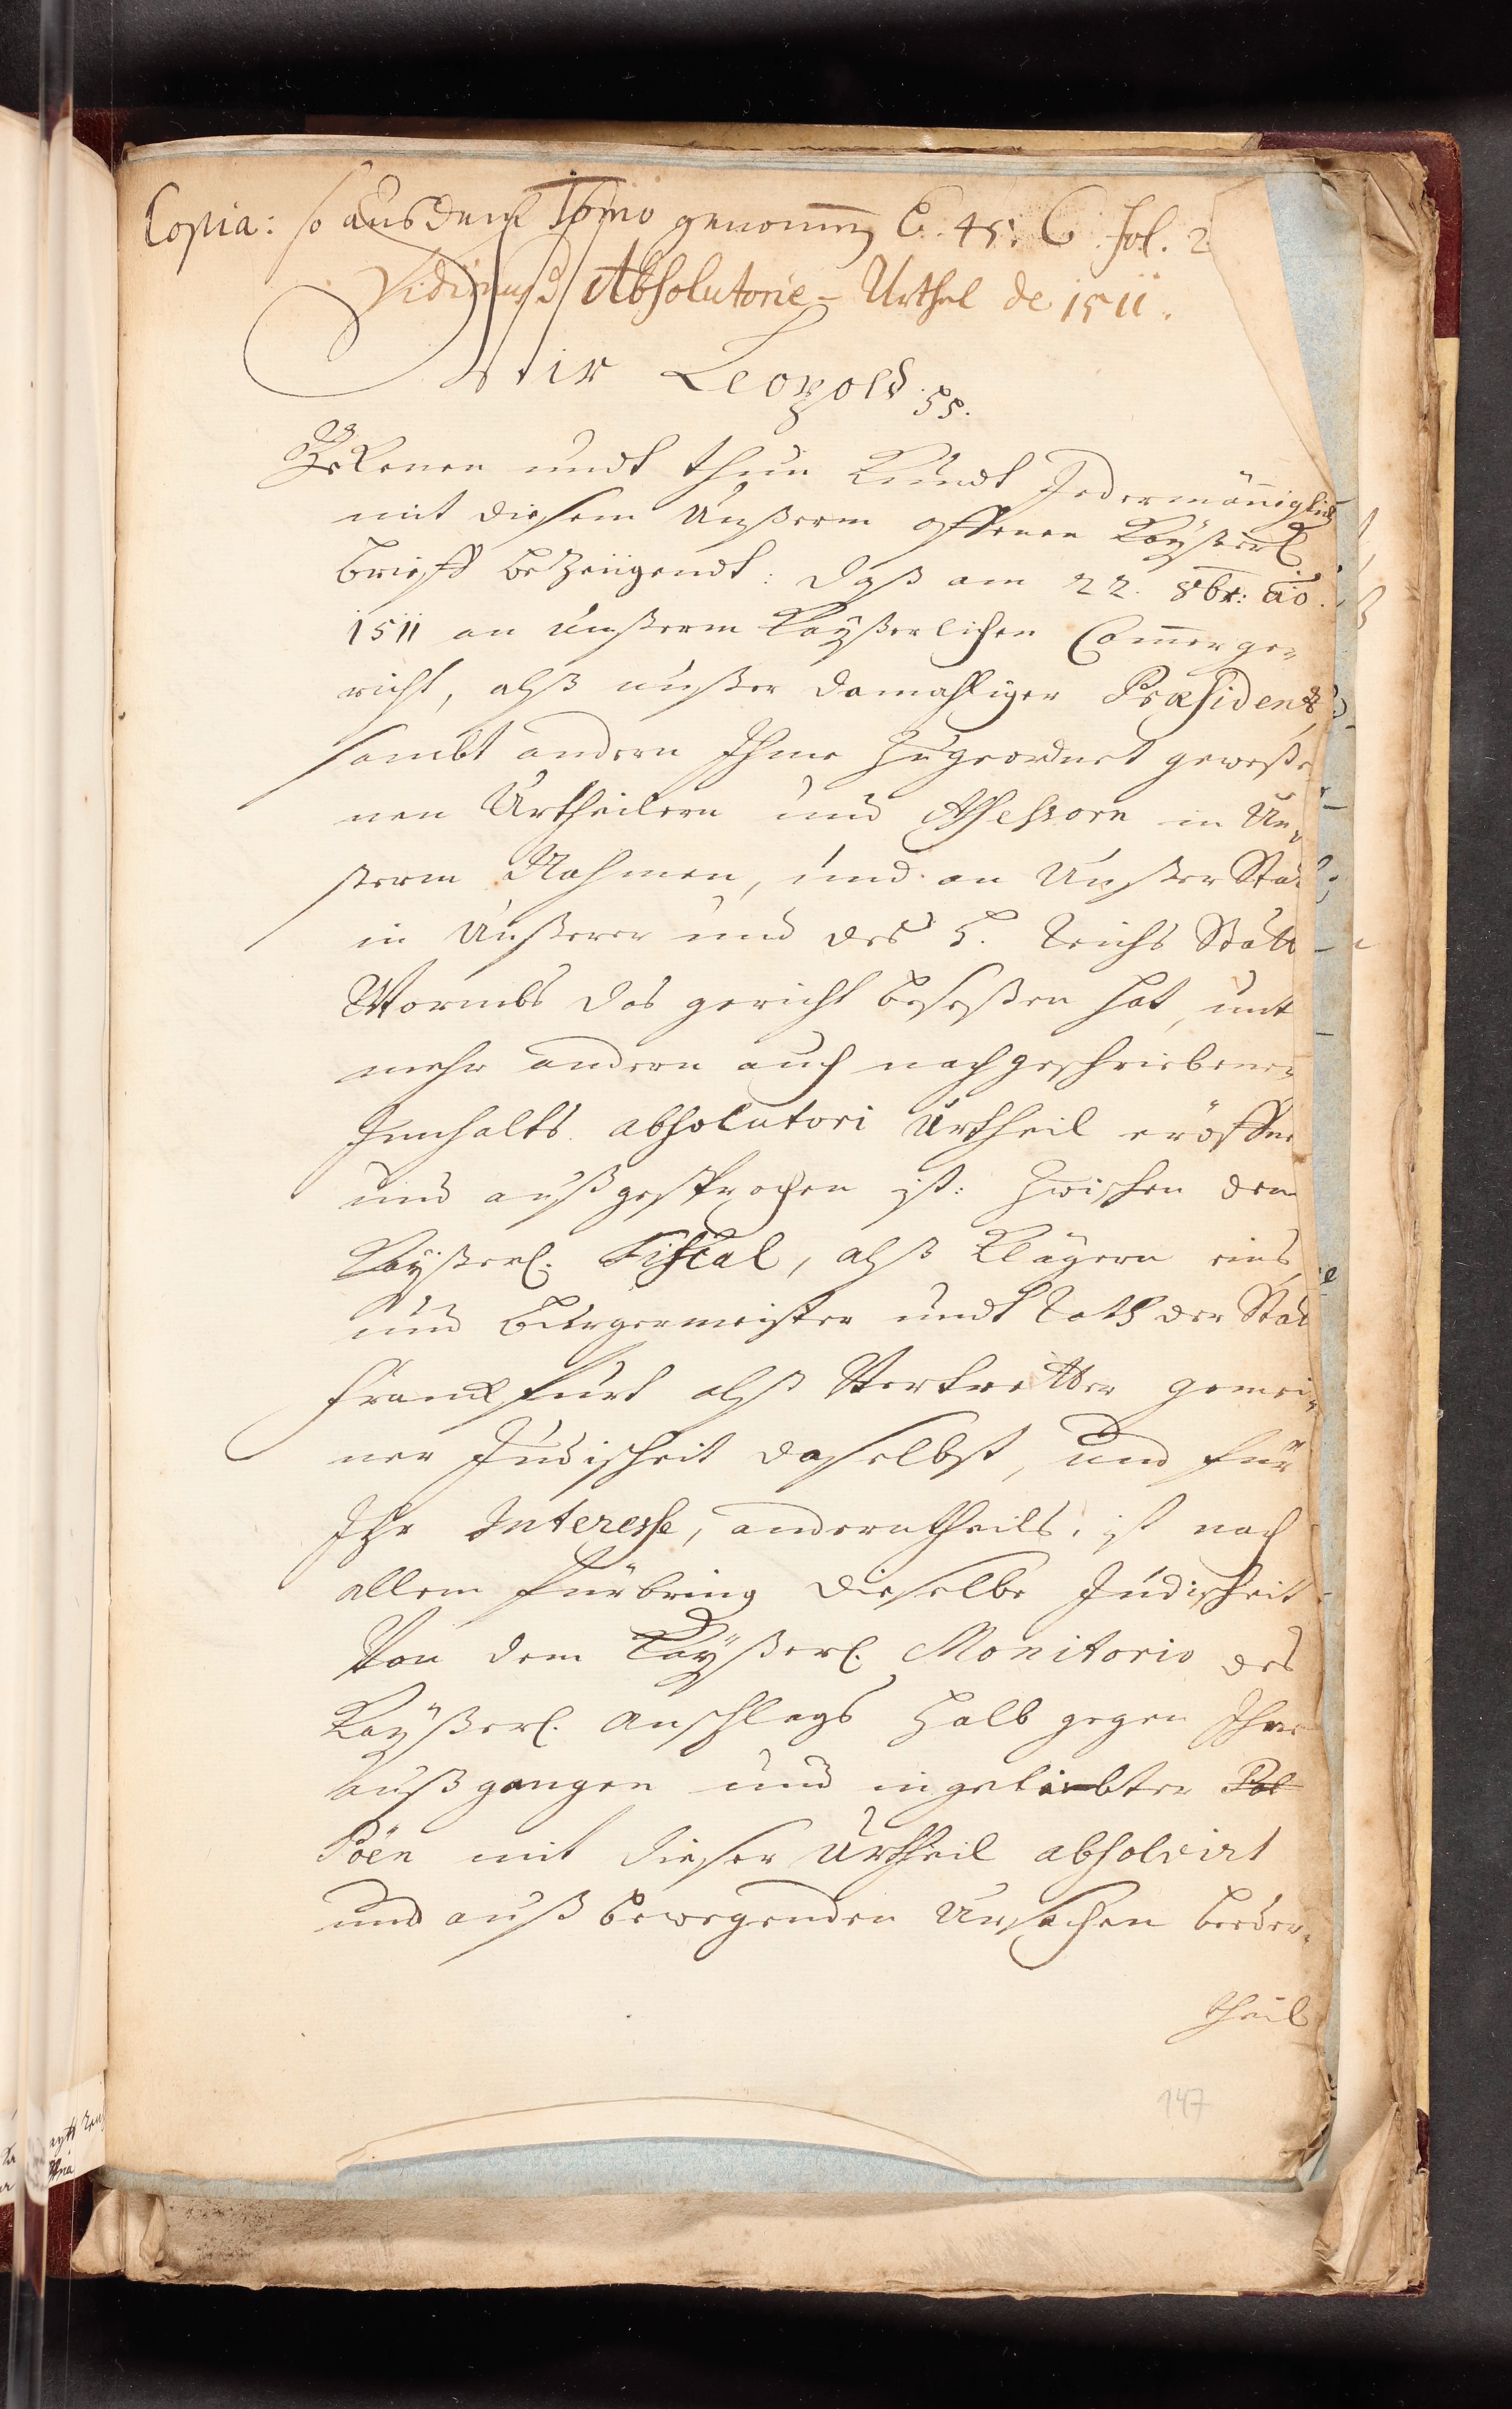 Copia: so aus dem Tomo genom̅en E. 45. C. fol. 2
Vidimus Absolutorie-Urthel de 1511.
Wir Leopold pp.
Bekenen undt thun Kundt Jedermäniglich
mit diesem Unßerm offenen Kayßerl.
brieff bezeügendt: daß am 22. 8br: ao.
1511 an unßerm Kayßerlichen Cam̅erge-
richt, alß unßer damahliger Præsident,
sambt andern Ihme Zugeordnet geweße
nen Urtheilern und Assessorn in Un-
serm Nahmen, und an Unßer Stat
in Unßerer und des H. Reichs Statt
Wormbs das gericht beseßen hat, unt
mehr andern auch nachgeschriebenen
Innhalts absolutori Urtheil eröffne
und außgesprochen ist: Zwischen dem
Kayßerl. Fiscal, alß Klägern eins
und Bürgermeister undt Rath der Stat
Franckfurt alß Vertretter gemei-
ner Judischeit daselbst, und für
Ihr Interesse, anderntheils, ist nach
allem fürbring dieselbe Judischeit
Von dem Kayßerl. Monitorio des
Kayßerl. Anschlags halb gegen Ihne
außgangen und ingeleibter Pol
Pöen mit dieser Urtheil absolvirt
und auß bewegenden Ursachen beeder-
theil
147